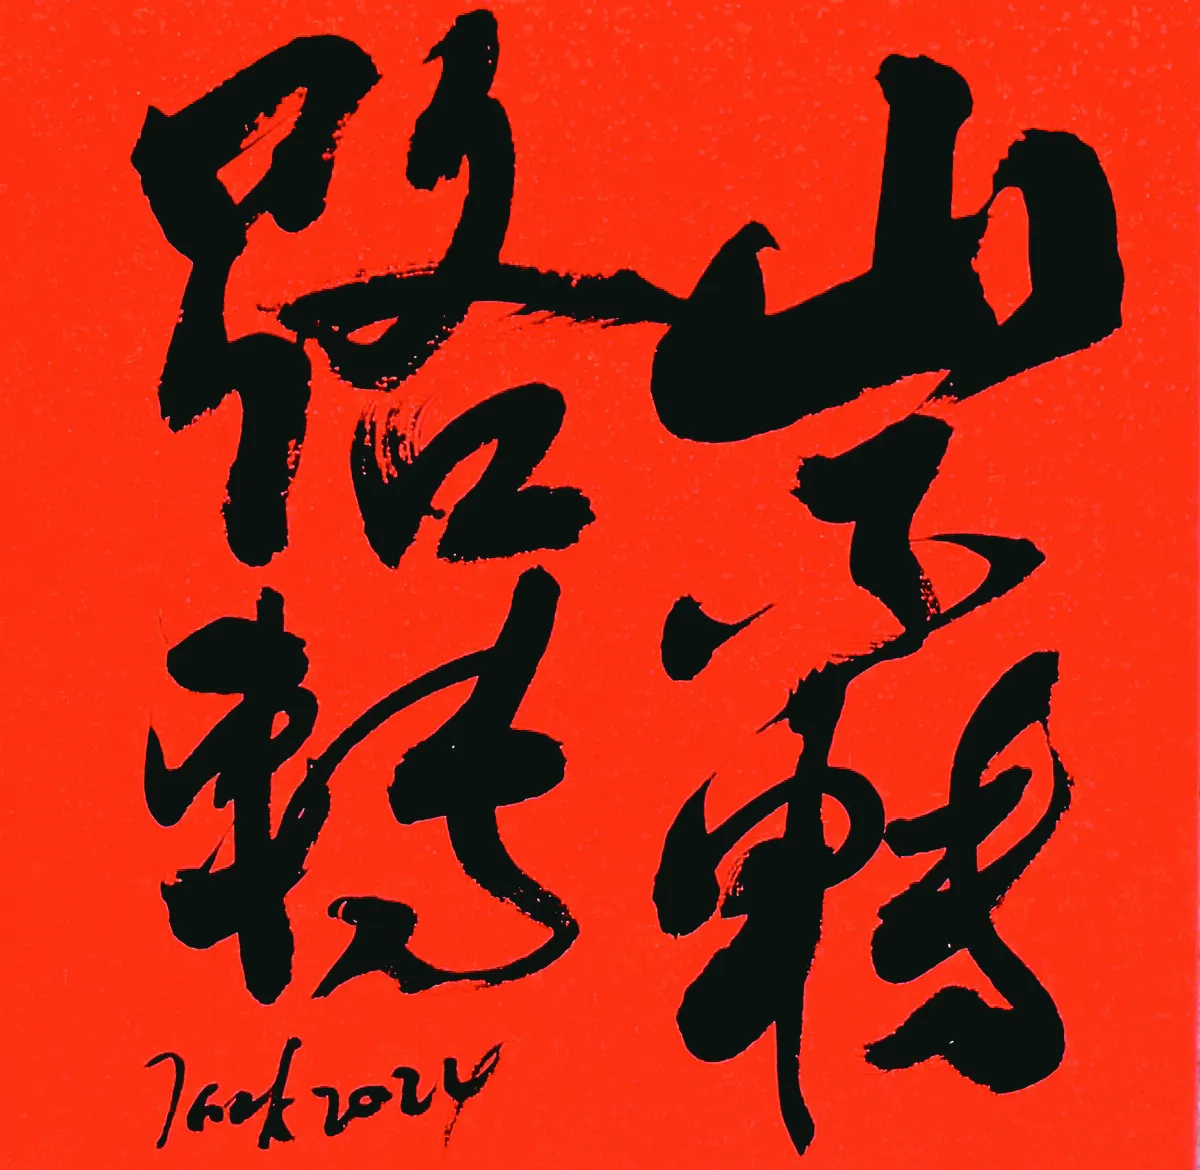 山不轉
路轉
Jack 2024